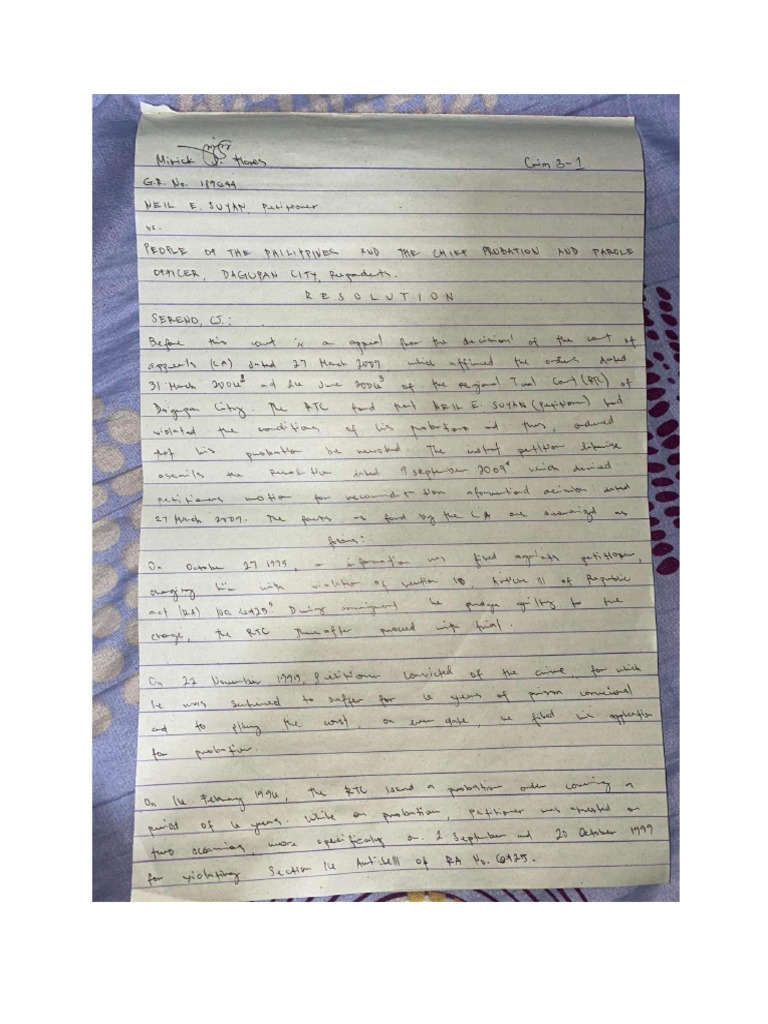 Mirick J. Flores Crim 3-1
G.R. No. 189644
NEIL E. SUYAN, Petitioner
vs.
PEOPLE OF THE PHILIPPINES AND THE CHIEF PROBATION AND PAROLE
OFFICER, DAGUPAN CITY, Respondents.
RESOLUTION
SERENO, CJ:
Before this court is an appeal from the decision¹ of the court of
appeals (CA) dated 27 March 2009, which affirmed the orders dated
31 March 2006² and June 2006³ of the Regional Trial Court (RTC) of
Dagupan City. The RTC found that NEIL E. SUYAN (petitioner) had
violated the conditions of his probation and thus, ordered
that his probation be revoked. The instant petition likewise
assails the Resolution dated 9 September 2009⁴ which denied
petitioners motion for decision dated
27 March 2009. The facts as found by the CA are summarized as
On October 27 1995, an information was filed againts petitioner,
charging him with violation of section 16, Article III of Republic
act (RA) No. 6425⁵. During he guilty to the
charge, the RTC Thereafter proceed with trial.
On 22 November 1995, petitioner convicted of the crime, for which
he was to suffer for 6 years of prison
and to the cost, on even date, he filed his application
for probation.
On 16 February 1996, The RTC issued a probation order covering a
period of 6 years. While on probation, petitioner was arrested on
two more specifically on 2 September and 20 October 1999
for violating Section 16 Article III of RA No. 6425.